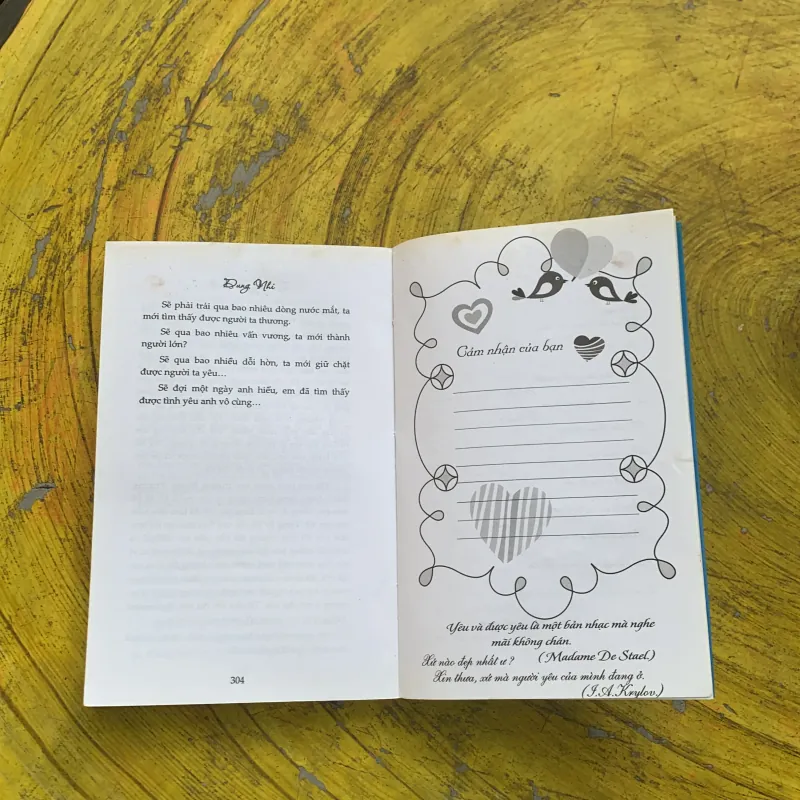 Dung Nhi
Sẽ phải trải qua bao nhiêu dòng nước mắt, ta
mới tìm thấy được người ta thương.
Sẽ qua bao nhiêu vấn vương, ta mới thành
người lớn?
Sẽ qua bao nhiểu dỗi hờn, ta mới giữ chặt
được người ta yêu...
Sẽ đợi một ngày anh hiểu, em đã tìm thấy
được tình yêu anh vô cùng...
304
Cảm nhận của bạn
Yêu và được yêu là một bản nhạc mà nghe
mãi không chán.
(Madame De Stael.)
Xứ nào đẹp nhất ư ?
Xin thưa, xứ mà người yêu của mình đang ở.
(I.A.Krylov.)